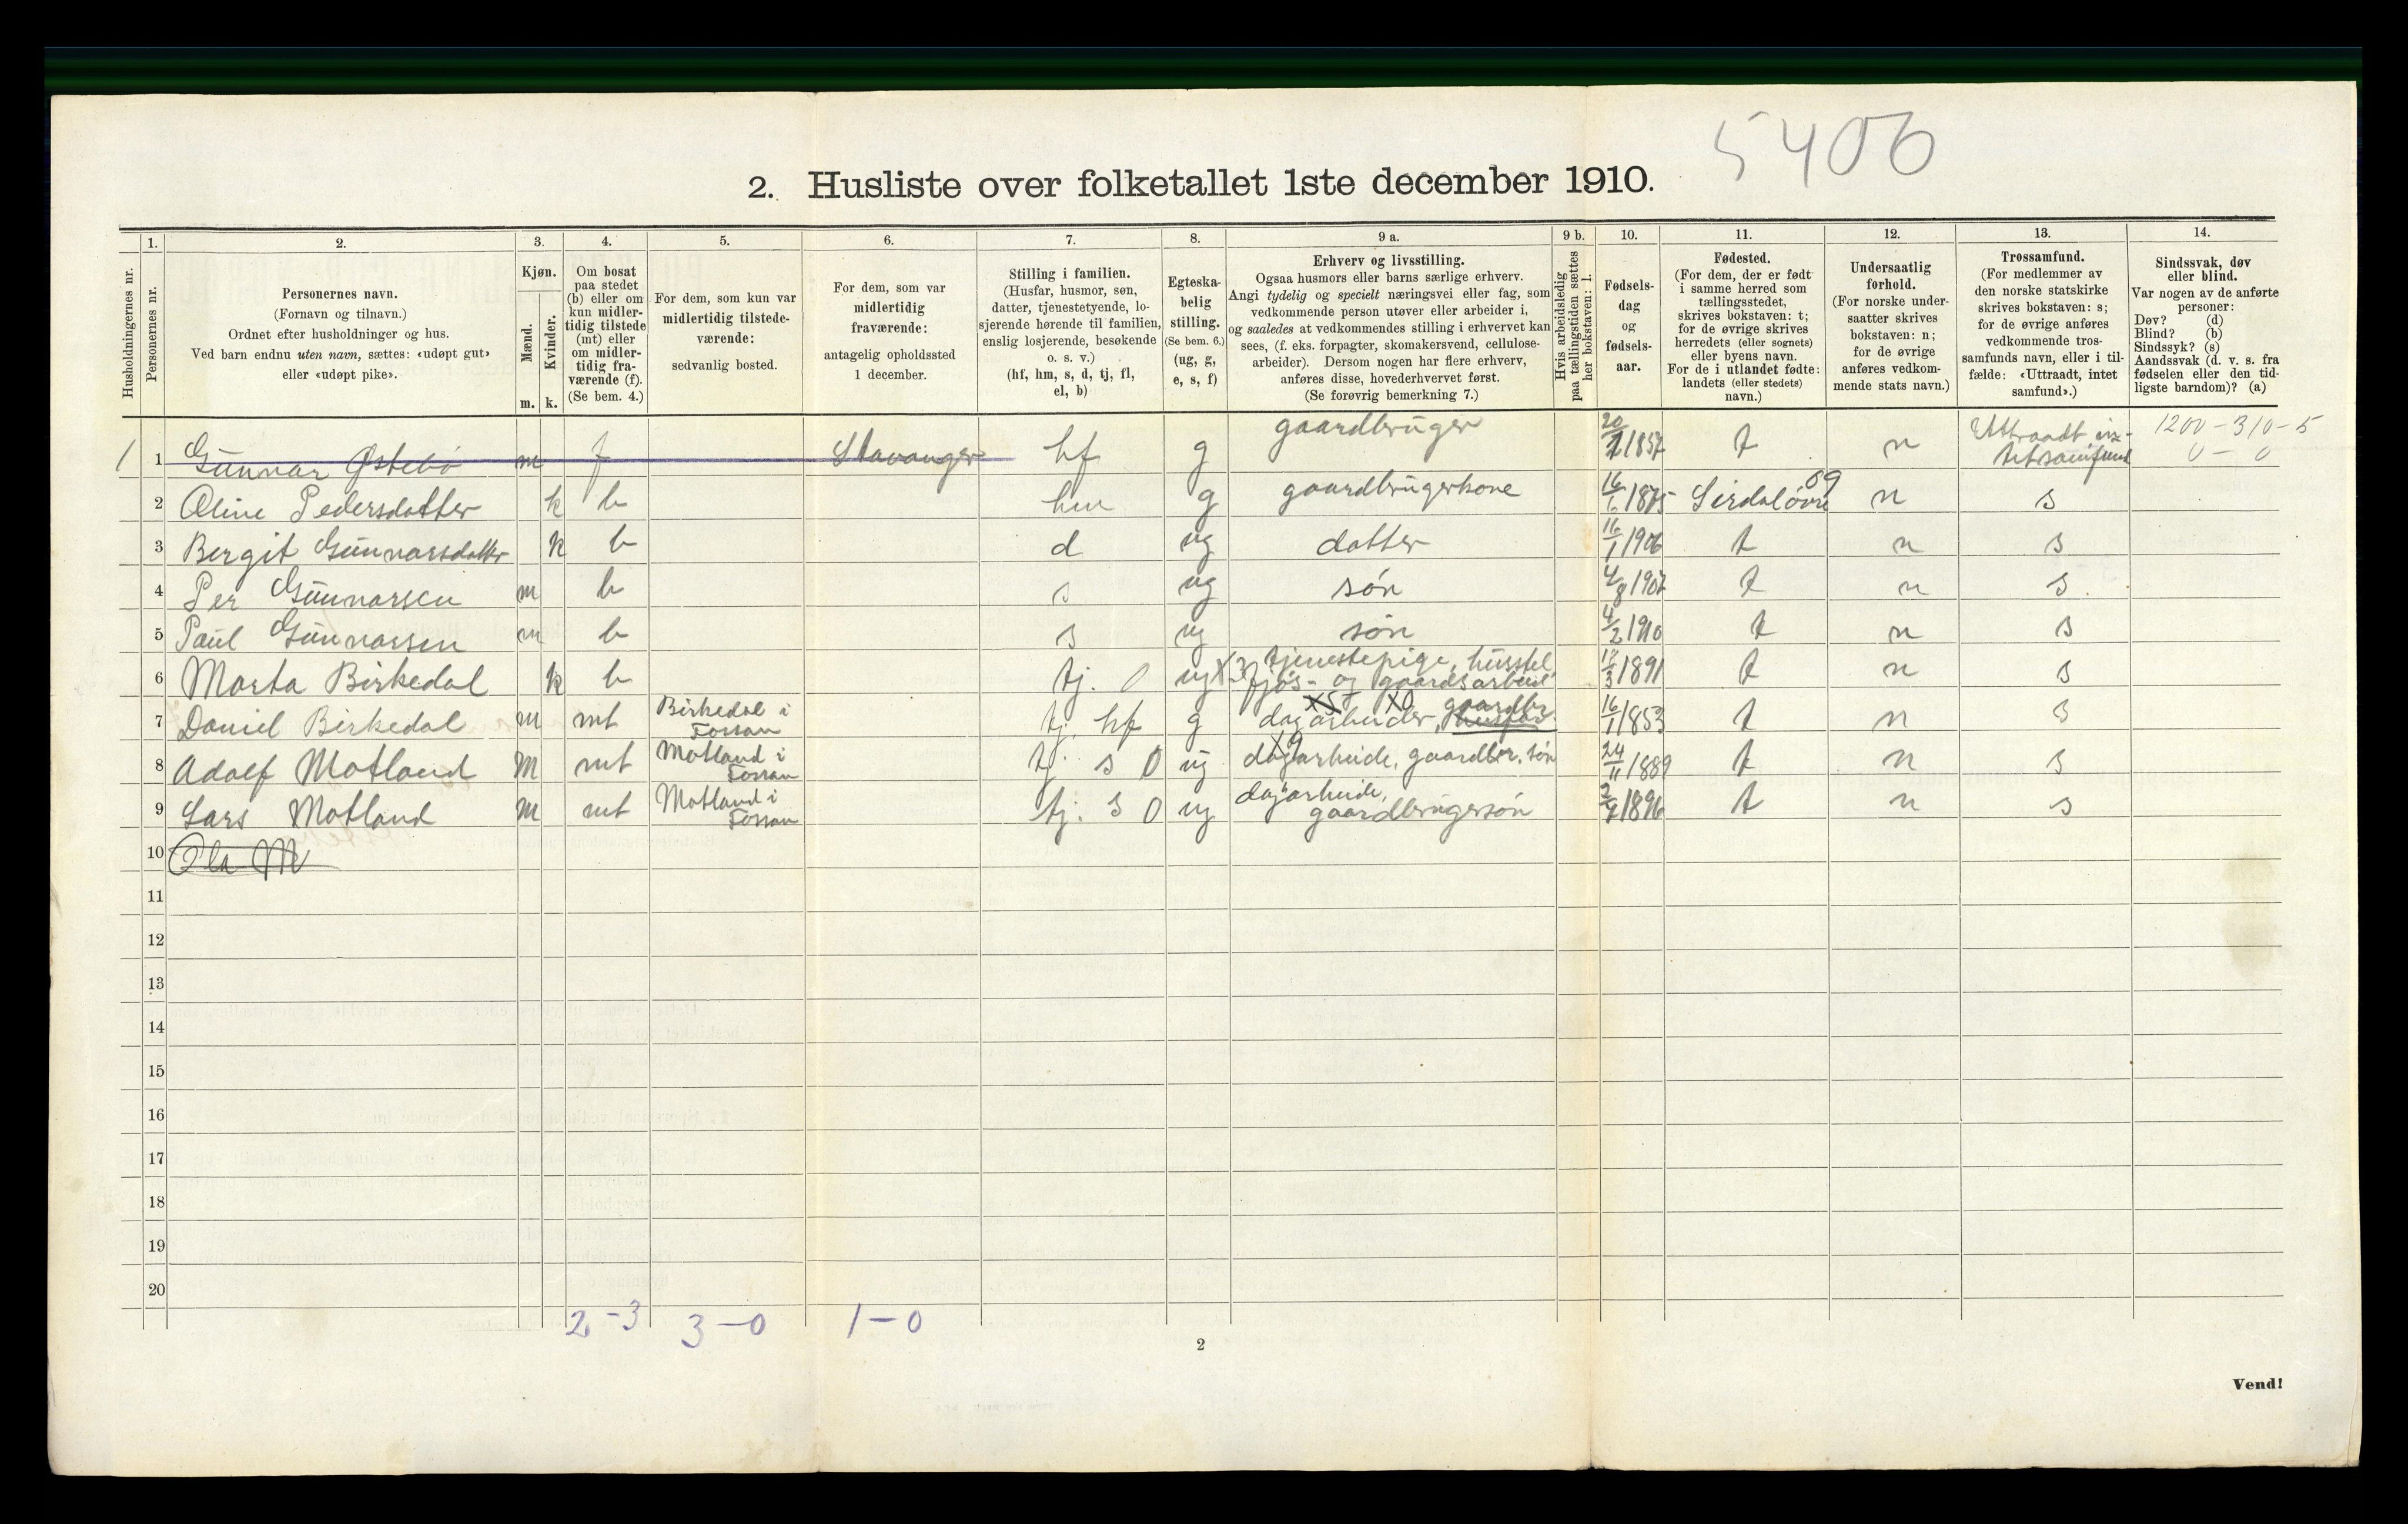 5406
2. Husliste over folketallet 1ste december 1910.
Husholdningernes nr.
1.
Personernes nr.
2.
Personernes navn.
(Fornavn og tilnavn.)
Ordnet efter husholdninger og hus.
Ved barn endnu uten navn, sættes: «udøpt gut»
eller «udøpt pike».
3.
Kjøn.
Mænd.
Kvinder.
m. k.
4.
Om bosat
paa stedet
(b) eller om
kun midler-
tidig tilstede
(mt) eller
om midler-
tidig fra-
værende (f).
(Se bem. 4.)
5.
For dem, som kun var
midlertidig tilstede-
værende:
sedvanlig bosted.
6.
For dem, som var
midlertidig
fraværende:
antagelig opholdssted
1 december.
7.
Stilling i familien.
(Husfar, husmor, søn,
datter, tjenestetyende, lo-
sjerende hørende til familien,
enslig losjerende, besøkende
o. s. v.)
(hf, hm, s, d, tj, fl,
el, b)
8.
Egteska-
belig
stilling.
(Se bem. 6.)
(ug, g,
e, s, f)
9 a.
Erhverv og livsstilling.
Ogsaa husmors eller barns særlige erhverv.
Angi tydelig og specielt næringsvei eller fag, som
vedkommende person utøver eller arbeider i,
og saaledes at vedkommendes stilling i erhvervet kan
sees, (f. eks. forpagter, skomakersvend, cellulose-
arbeider). Dersom nogen har flere erhverv,
anføres disse, hovederhvervet først.
(Se forøvrig bemerkning 7.)
9 b.
Hvis arbeidsledig
paa tællingstiden sættes
her bokstaven: l.
10.
Fødsels-
dag
og
fødsels-
aar.
11.
Fødested.
(For dem, der er født
i samme herred som
tællingsstedet,
skrives bokstaven: t;
for de øvrige skrives
herredets (eller sognets)
eller byens navn.
For de i utlandet fødte:
landets (eller stedets)
navn.)
12.
Undersaatlig
forhold.
(For norske under-
saatter skrives
bokstaven: n;
for de øvrige
anføres vedkom-
mende stats navn.)
13.
Trossamfund.
(For medlemmer av
den norske statskirke
skrives bokstaven: s;
for de øvrige anføres
vedkommende tros-
samfunds navn, eller i til-
fælde: «Uttraadt, intet
samfund».)
14.
Sindssvak, døv
eller blind.
Var nogen av de anførte
personer:
Døv? (d)
Blind? (b)
Sindssyk? (s)
Aandssvak (d. v. s. fra
fødselen eller den tid-
ligste barndom)? (a)
1 1 Gunnar Østebö m f Stavanger hf g gaardbruger 1857 t n Uttraadt in- 1200-310-5
tetsamfund 0-0
2 Oline Pedersdatter k b hm g gaardbrugerkone 16/1 1875 Sirdal övre 89 n s
3 Bergit Gunnarsdatter k b d ug datter 16/1 1906 t n s
4 Per Gunnarsen m b s ug sön 4/8 1907 t n s
5 Paul Gunnarsen m b s ug sön 4/2 1910 t n s
6 Marta Birkedal k b tj. 0 ug X3 tjenestepige, husstel
fjös- og gaardsarbeid 1891 t n s
7 Daniel Birkedal m mt Birkedal i
Fossan tj. hf g X5 X0 dagarbeider, gaardbr. husfar 16/1 1853 t n s
8 Adolf Motland M mt Motland i
Fossan tj. s 0 ug dagarbeide, gaardbr. sön 24/11 1889 t n s
9 Lars Motland M mt Motland i
Fossan tj. s 0 ug dagarbeide,
gaardbrugersön 1896 t n s
10 Ola M
11
12
13
14
15
16
17
18
19
20
2-3 3-0 1-0
2
Vend!